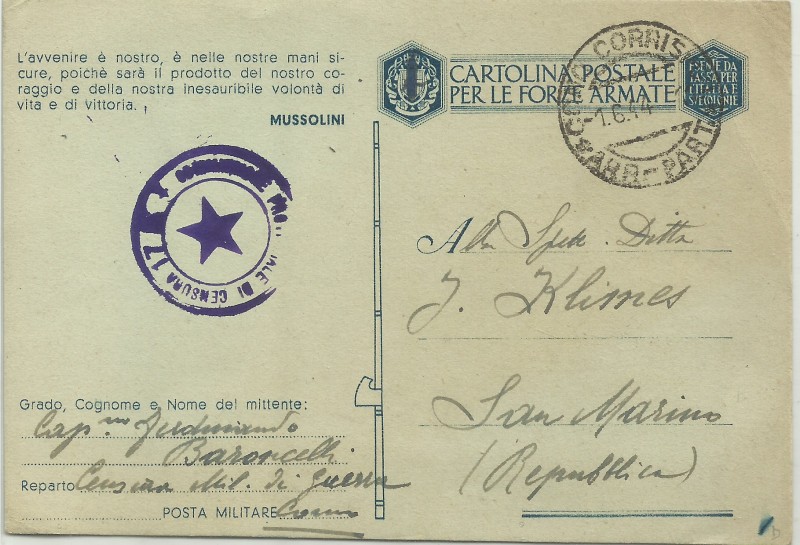 L'avvenire è nostro, è nelle nostre mani si-
cure, poichè sarà il prodotto del nostro co-
raggio e della nostra inesauribile volontà di
vita e di vittoria.
MUSSOLINI
CARTOLINA POSTALE
PER LE FORZE ARMATE
ESENTE DA
TASSA PER
L'ITALIA E
CORRIS
-1.6.44
ARR-PART
17
DI CENSURA
Alla Spett. Ditta
J. Klimes
San Marino
(Repubblica)
Grado, Cognome e Nome del mittente:
Cap.no Ferdinando
Baroncelli
Reparto Censura Mil. di guerra
POSTA MILITARE Como